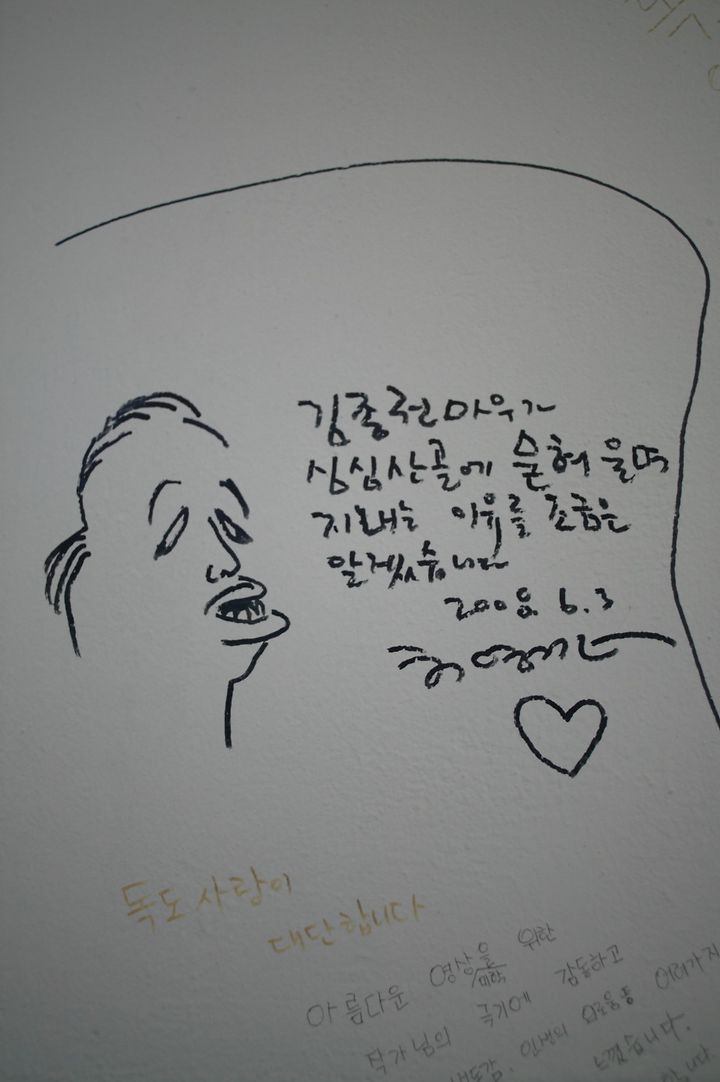 김종권아우가
심심산골에 묻혀 울며
지내는 이유를 조금은
알겠습니다
2008. 6. 3
독도 사랑이
대단합니다
아름다운 영상을 위한
미학
작가님의 극기에 감동하고
인생의 외로움 등 여러가지
느꼈습니다.